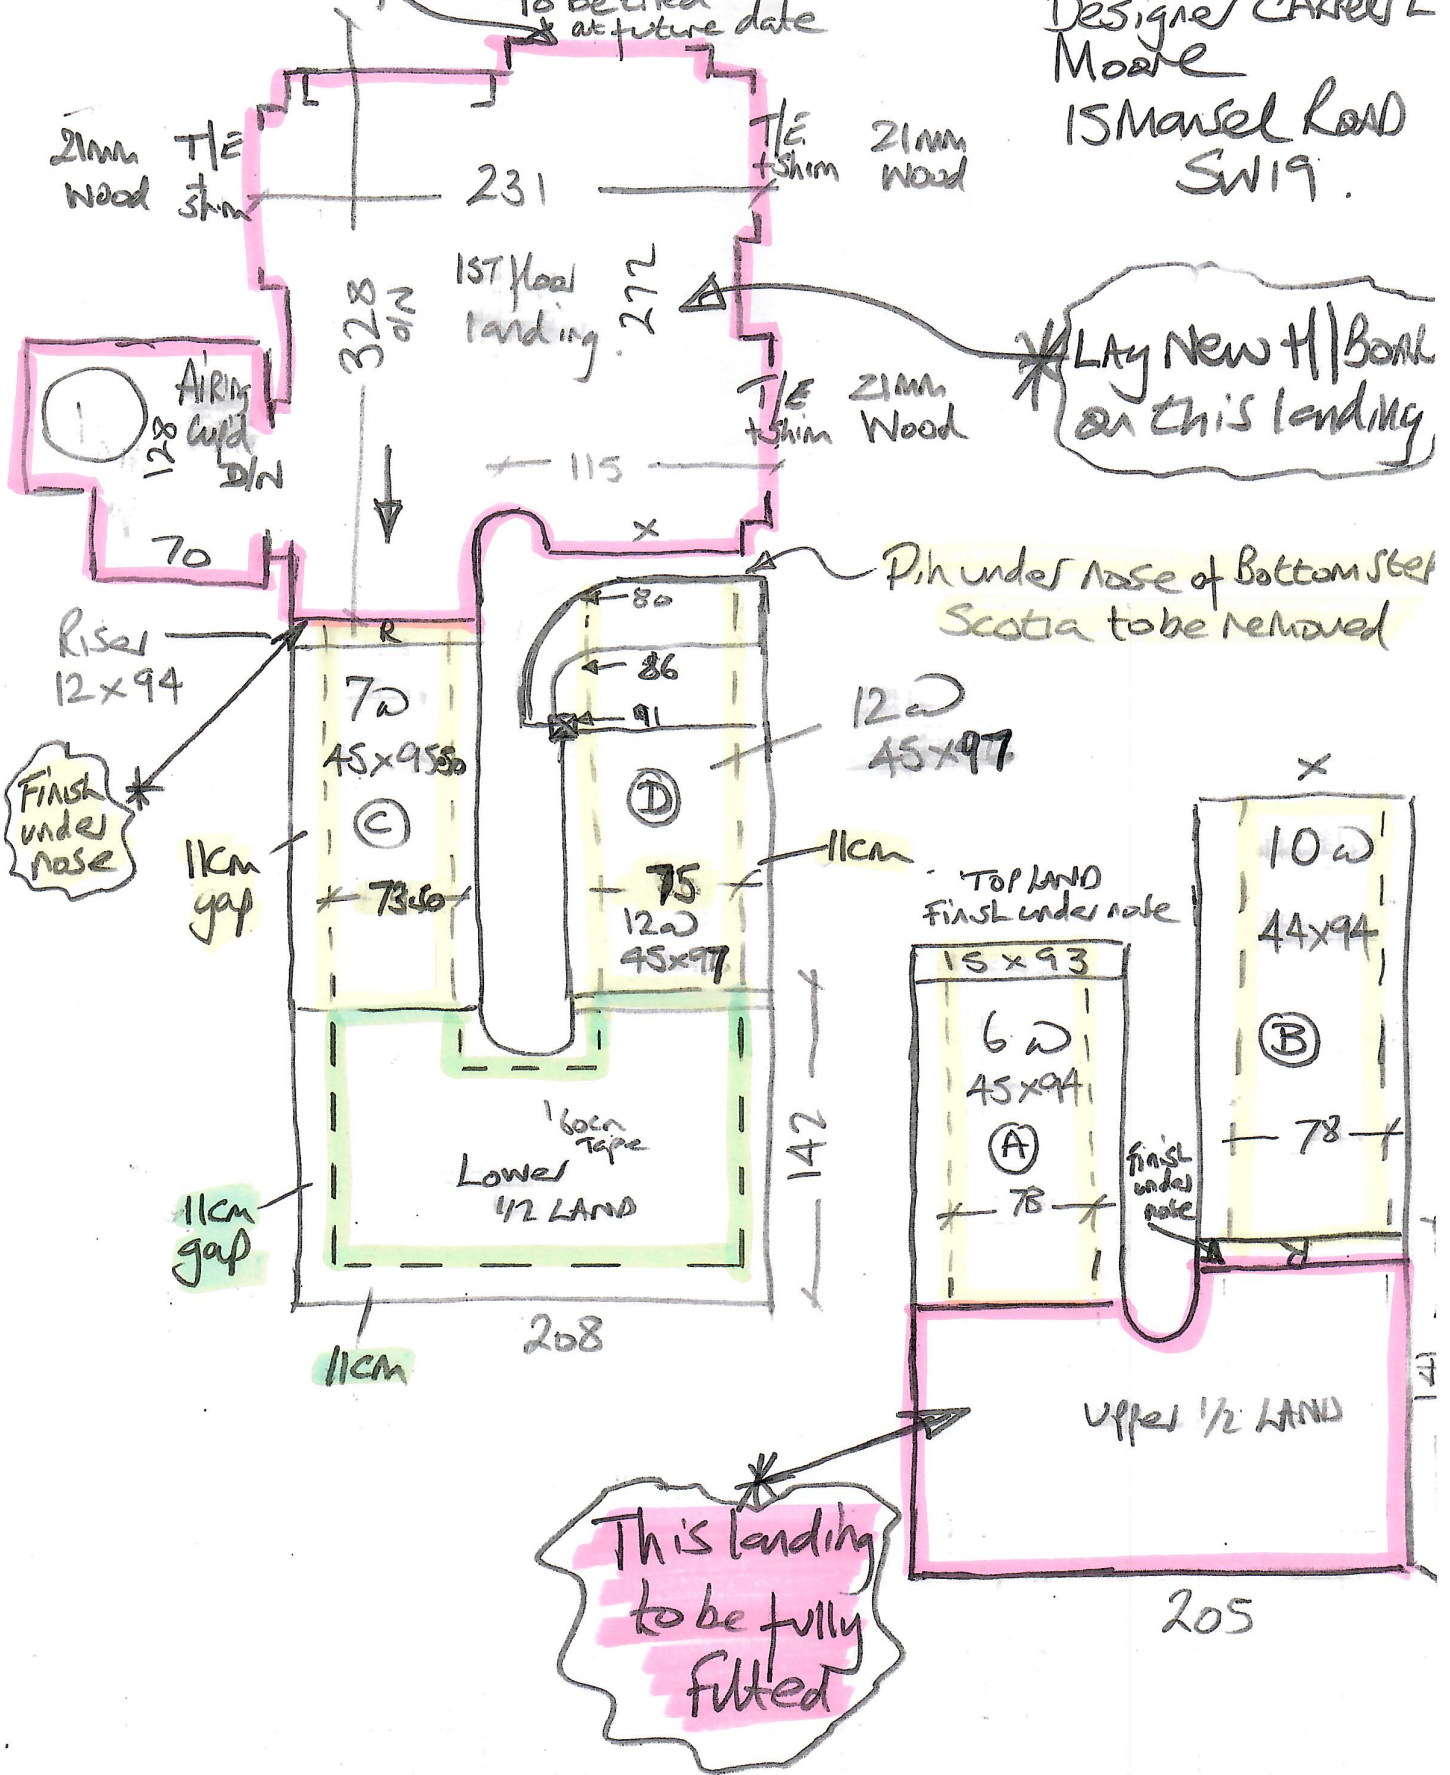 at future date
Designer
Moore
15 Mansel Road
SW19.
21mm
Wood
T/E
+
shim
231
T/E
+shim
21mm
Wood
328
D/N
1ST floor
landing.
272
Lay New H/Board
on this landing
Airing
Cup'd
128
D/N
70
T/E
+shim
21mm
Wood
115
X
Pin under nose of Bottom Step
Scotia to be removed
Riser
12x94
R
80
86
91
7W
45x95.50
C
12W
45x97
D
Finish
under
nose
11cm
gap
73.50
75
11cm
12W
45x97
X
10W
44x94
B
78
TOP LAND
Finish under nose
15x93
6W
45x94
A
78
Finish
under
nose
R
160cm
Tape
Lower
1/2 LAND
142
11cm
gap
208
11cm
Upper 1/2 LAND
This landing
to be fully
fitted
205